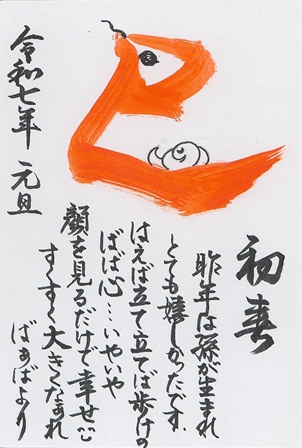 初春
昨年は孫が生まれ
とても嬉しかったです、
はえば立て立てば歩けの
ばば心…いやいや
顔を見るだけで幸せ
すくすく大きくなあれ
ばぁばより
令和七年 元旦